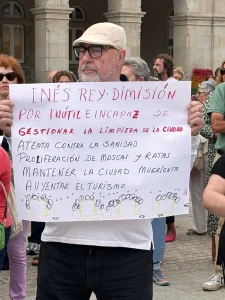 INÉS REY-DIMISIÓN
POR INÚTIL E INCAPAZ DE
GESTIONAR LA LIMPIEZA DE LA CIUDAD
ATENTA CONTRA LA SANIDAD
PROLIFERACIÓN DE MOSCAS Y RATAS
MANTENER LA CIUDAD MUGRIENTA
AUYENTAR EL TURISMO